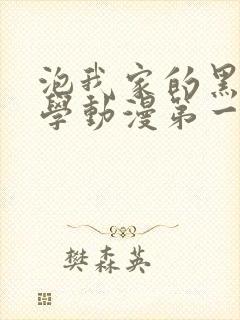 泡我家的黑
學動漫第一
樊森英